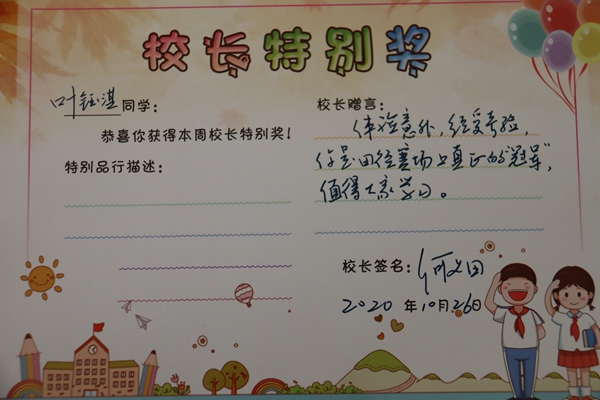 校长特别奖
叶钰淇同学：
恭喜你获得本周校长特别奖！
特别品行描述：
校长赠言：
体验意外，经受考验，
你是田径赛场上真正的“冠军”，
值得大家学习。
校长签名：何文田
2020年10月26日